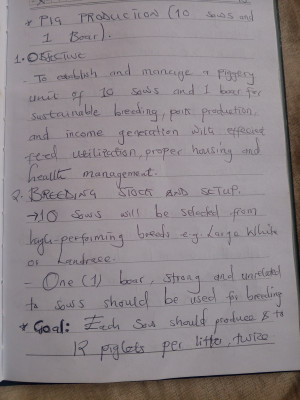 * PIG PRODUCTION (10 sows and
1 Boar).
1. OBJECTIVE
- To establish and manage a piggery
unit of 10 sows and 1 boar for
sustainable breeding, pork production,
and income generation with effective
feed utilization, proper housing and
health management.
2. BREEDING STOCK AND SETUP.
→ 10 Sows will be selected from
high-performing breeds e.g. Large White
or Landrace.
- One (1) boar, strong and unrelated
to sows should be used for breeding
* Goal: Each sow should produce 8 to
12 piglets per litter, twice